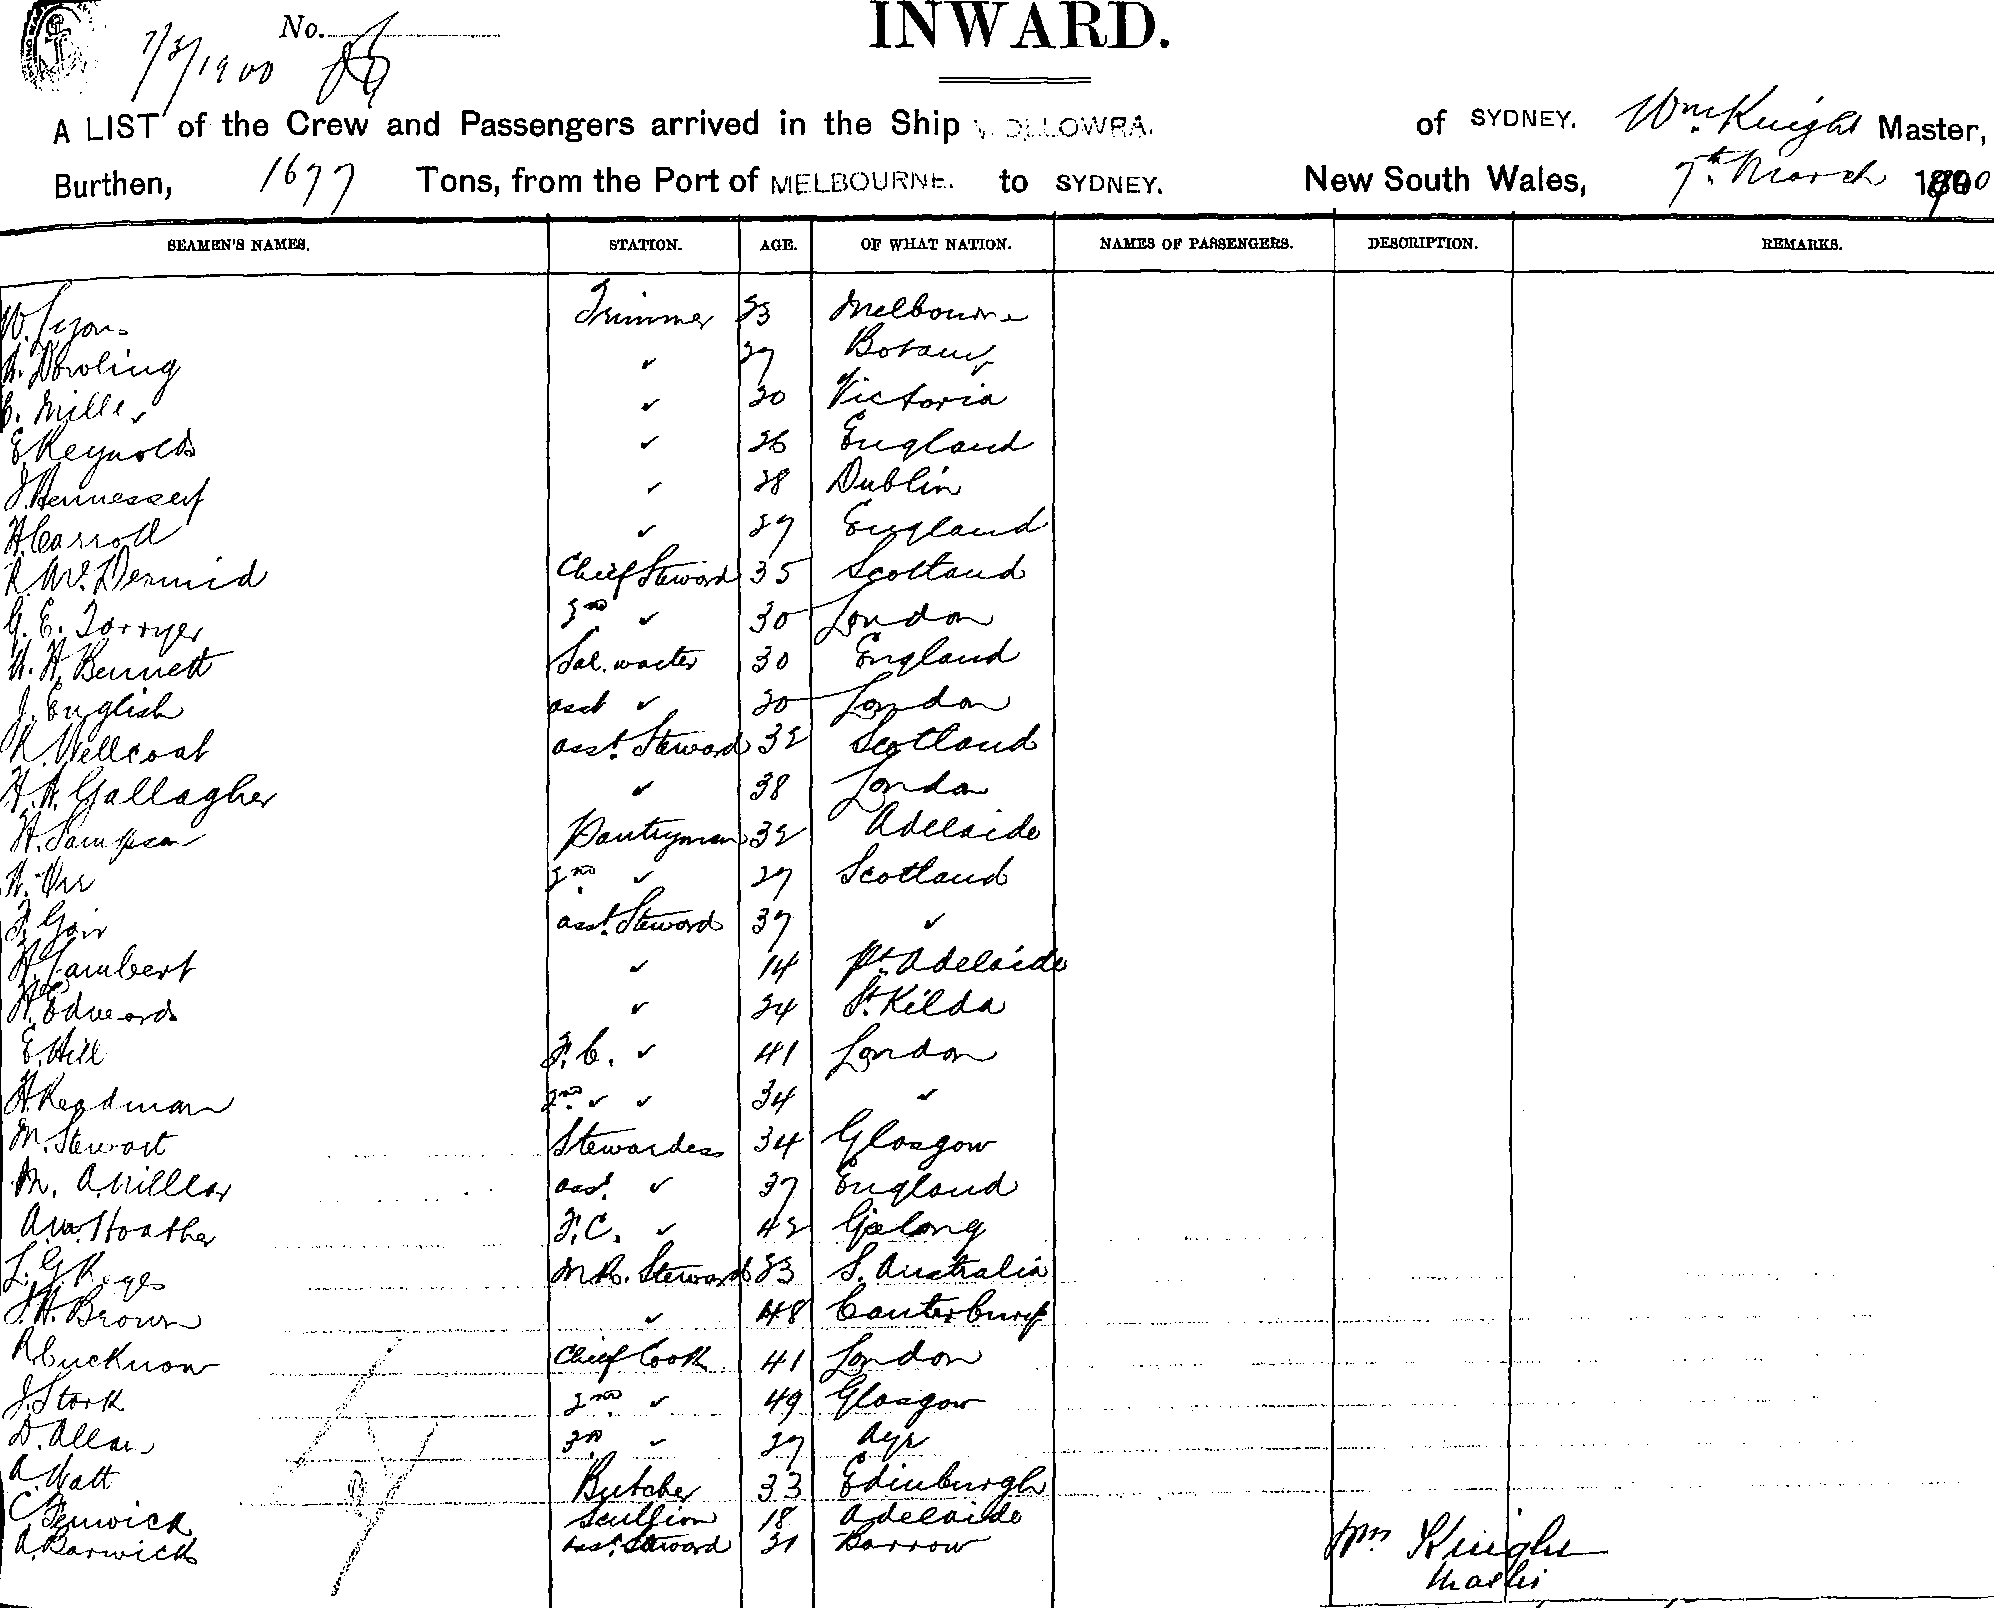 No.
7/3/1900
INWARD.
A LIST of the Crew and Passengers arrived in the Ship WOLLOWRA. of SYDNEY. Wm Knight Master,
Burthen, 1677 Tons, from the Port of MELBOURNE. to SYDNEY. New South Wales, 7th March 1900
SEAMEN'S NAMES. STATION. AGE. OF WHAT NATION. NAMES OF PASSENGERS. DESCRIPTION. REMARKS.
W. Lyons Trimmer 23 Melbourne
Dowling 〃 27 Botany
Miller 〃 20 Victoria
E. Reynolds 〃 26 England
J. Hennessey 〃 28 Dublin
H. Carrod 〃 27 England
R. McDermid Chief Steward 35 Scotland
G. E. Torryer 2nd 〃 30 London
H. Bennett Sal. waiter 30 England
J. English asst 〃 20 London
R. Wellcoat asst. Steward 32 Scotland
Gallagher 〃 38 London
H. Sampson Pantryman 32 Adelaide
Orr 2nd 〃 27 Scotland
Gair asst. Steward 37 〃
H. Lambert 〃 14 Pt. Adelaide
H. Edwards 〃 24 St. Kilda
E. Hill F.C. 〃 41 London
H. Readman 2nd 〃 〃 34 〃
M. Stewart Stewardess 34 Glasgow
M. A. Millar asst. 〃 37 England
A. W. Hoather F.C. 〃 42 Gelong
L. G. Steward 23 S. Australia
J. H. Brown 〃 48 Canterbury
R. Cucknow Chief Cook 41 London
J. Stork 2nd 〃 49 Glasgow
D. Allan 3rd 〃 27 Ayr
A. Watt Butcher 33 Edinburgh
C. Fenwick Scullion 18 Adelaide
A. Barwick asst. Steward 21 Barrow
Wm Knight
Master